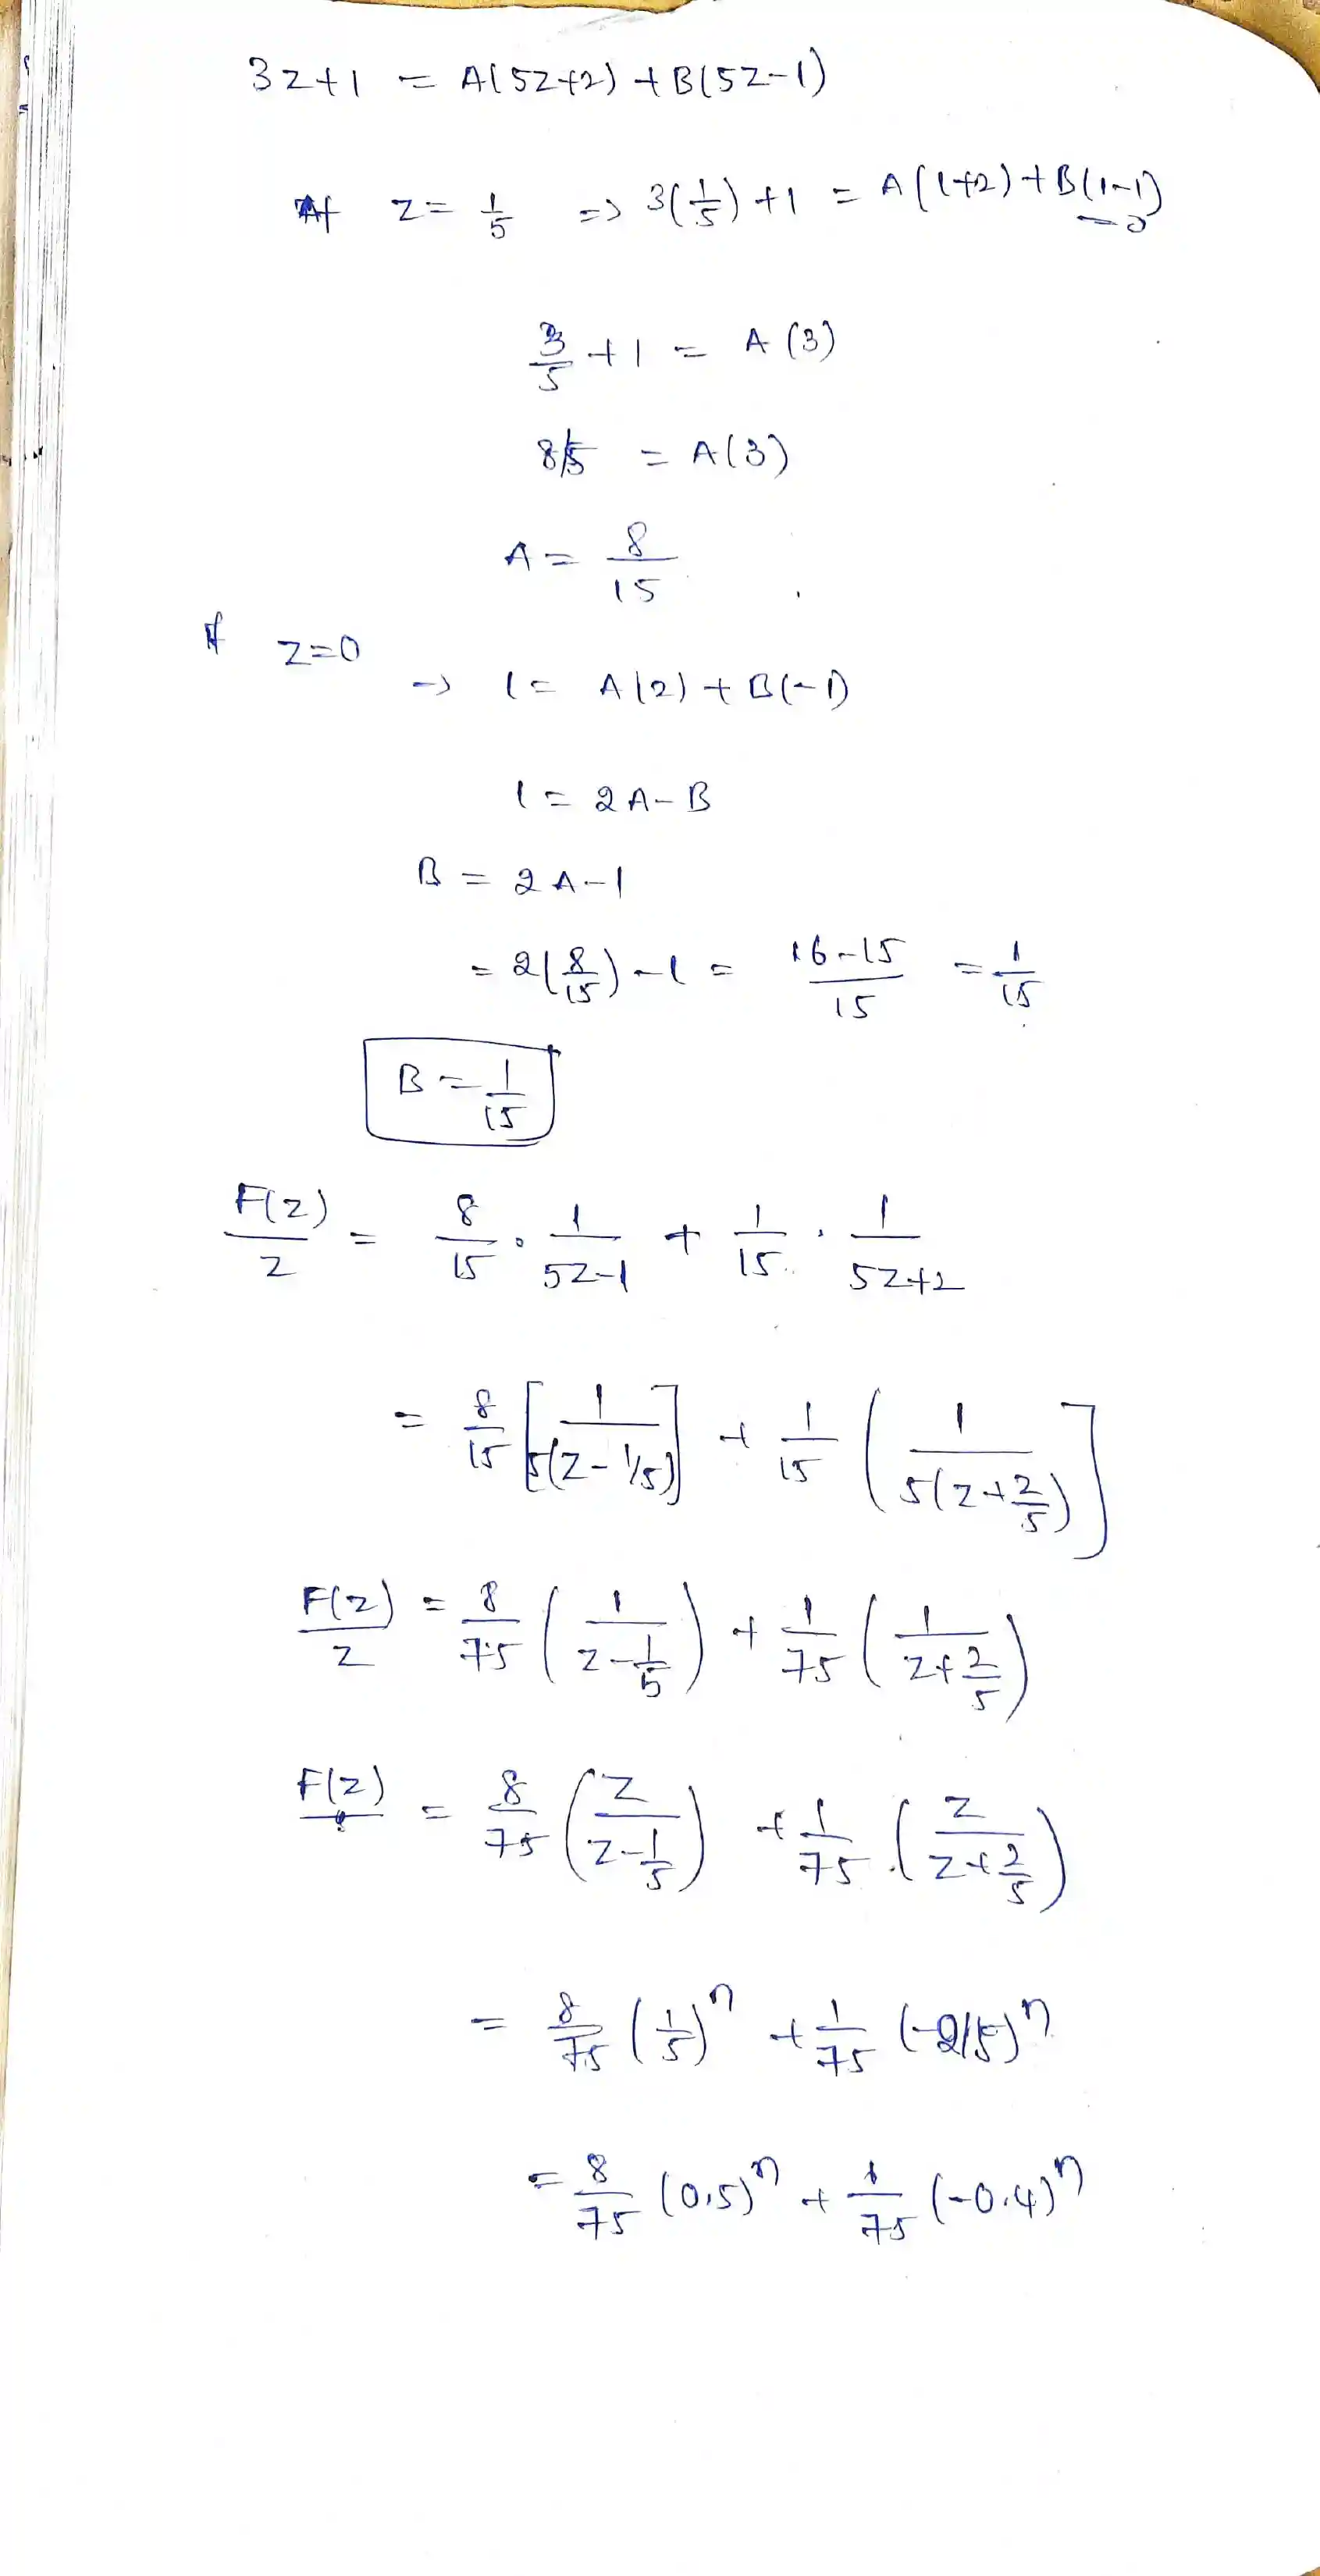 3z+1 = A(5z+2) + B(5z-1)
At z = 1/5 => 3(1/5) + 1 = A(1+2) + B(1-1) = 0
3/5 + 1 = A(3)
8/5 = A(3)
A = 8/15
If z=0
-> 1 = A(2) + B(-1)
1 = 2A - B
B = 2A - 1
= 2(8/15) - 1 = 16-15/15 = 1/15
B = 1/15
F(z)/z = 8/15 . 1/5z-1 + 1/15 . 1/5z+2
= 8/15 [1/5(z-1/5)] + 1/15 (1/5(z+2/5)]
F(z)/z = 8/75 (1/z-1/5) + 1/75 (1/z+2/5)
F(z) = 8/75 (z/z-1/5) + 1/75 . (z/z+2/5)
= 8/75 (1/5)^n + 1/75 (-2/5)^n
= 8/75 (0.5)^n + 1/75 (-0.4)^n